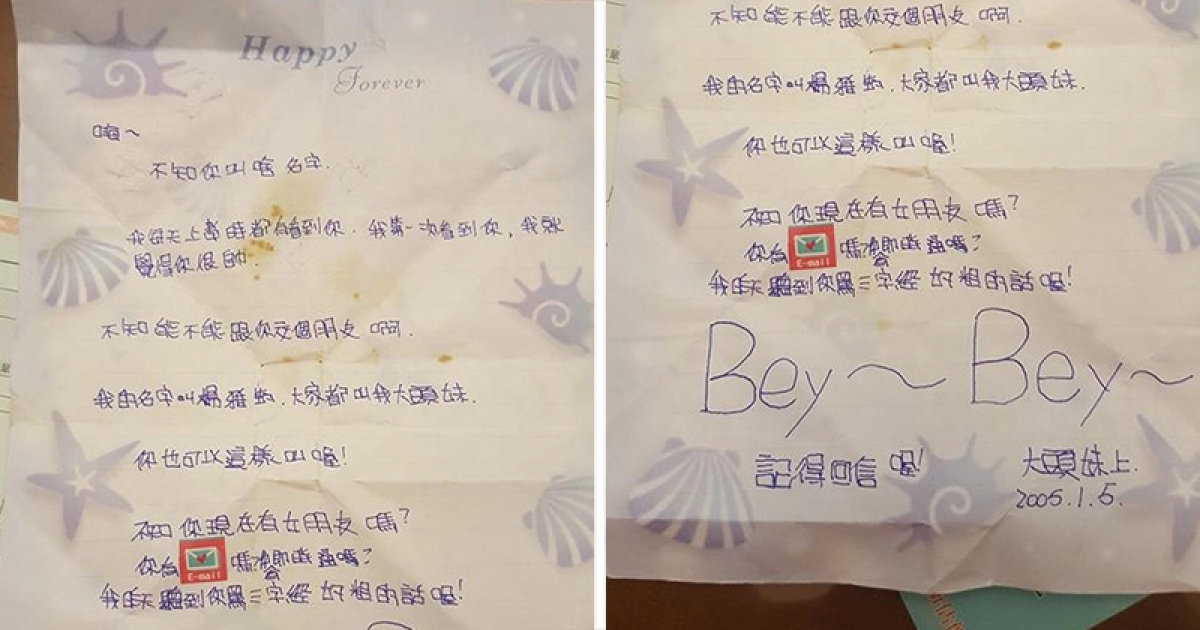 Happy
Forever
嗨~
不知你叫啥名字.
我每天上學時都有看到你. 我第一次看到你, 我就
覺得你很帥.
不知能不能跟你交個朋友 啊.
我的名字叫楊雅. 大家都叫我大頭妹.
你也可以這樣叫喔!
不知你現在有女朋友嗎?
你有 E-mail 嗎?即時通嗎?
我昨天聽到你罵三字經 好粗的話喔!
不知能不能跟你交個朋友 啊.
我的名字叫楊雅. 大家都叫我大頭妹.
你也可以這樣叫喔!
不知你現在有女朋友嗎?
你有 E-mail 嗎?即時通嗎?
我昨天聽到你罵三字經 好粗的話喔!
Bey~ Bey~
記得回信喔! 大頭妹上.
2005.1.5.